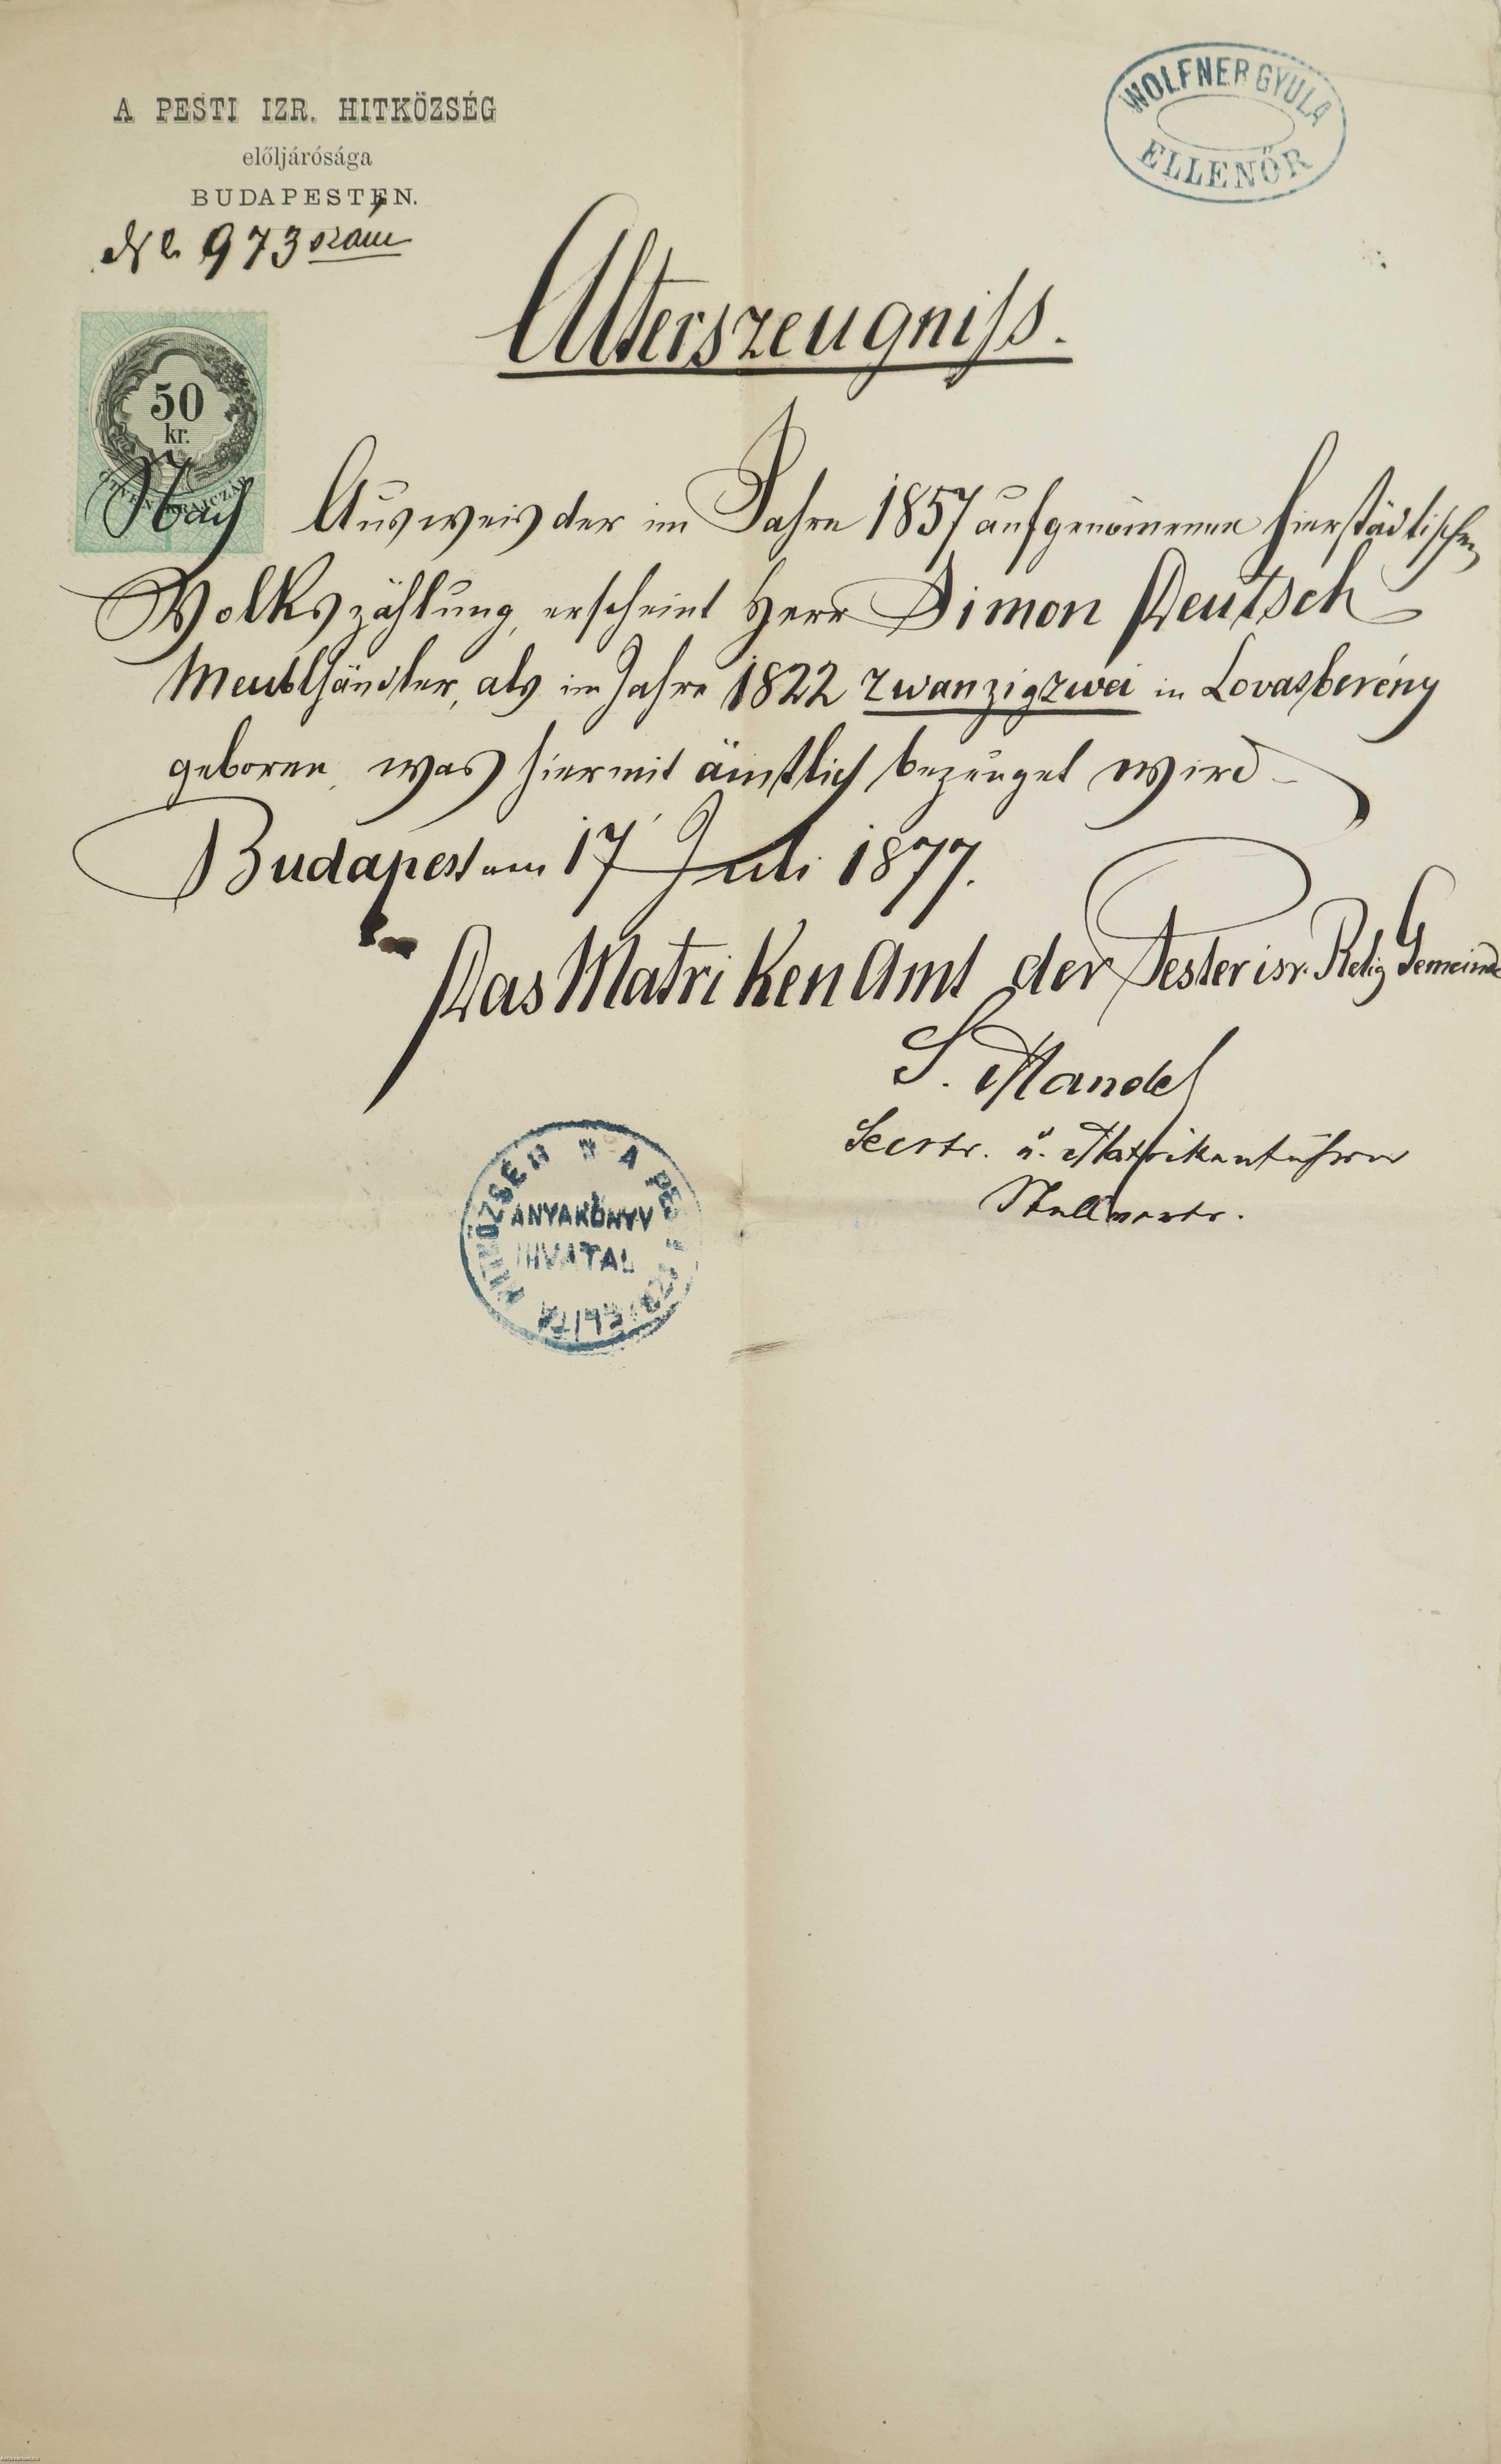 A PESTI IZR. HITKÖZSÉG
előljárósága
BUDAPESTEN.
No 973 szám
WOLFNER GYULA
ELLENŐR
Alterszeugniss.
50
kr.
ÖTVEN KRAJCZÁR
Nach Ausweis der im Jahre 1857 aufgenom̄enen hierstädtischen
Volkszählung, erscheint Herr Simon Deutsch
Meublhändler, als im Jahre 1822 zwanzigzwei in Lovasberény
geboren, was hiermit ämtlich bezeuget wird
Budapest am 17 Juli 1877.
Das Matriken Amt der Pester isr. Relig Gemeinde
S. Mandel
Secretr. u. Matrikenführer
Stellvertr.
A PESTI IZRAELITA HITKÖZSÉG
ANYAKÖNYV
HIVATAL